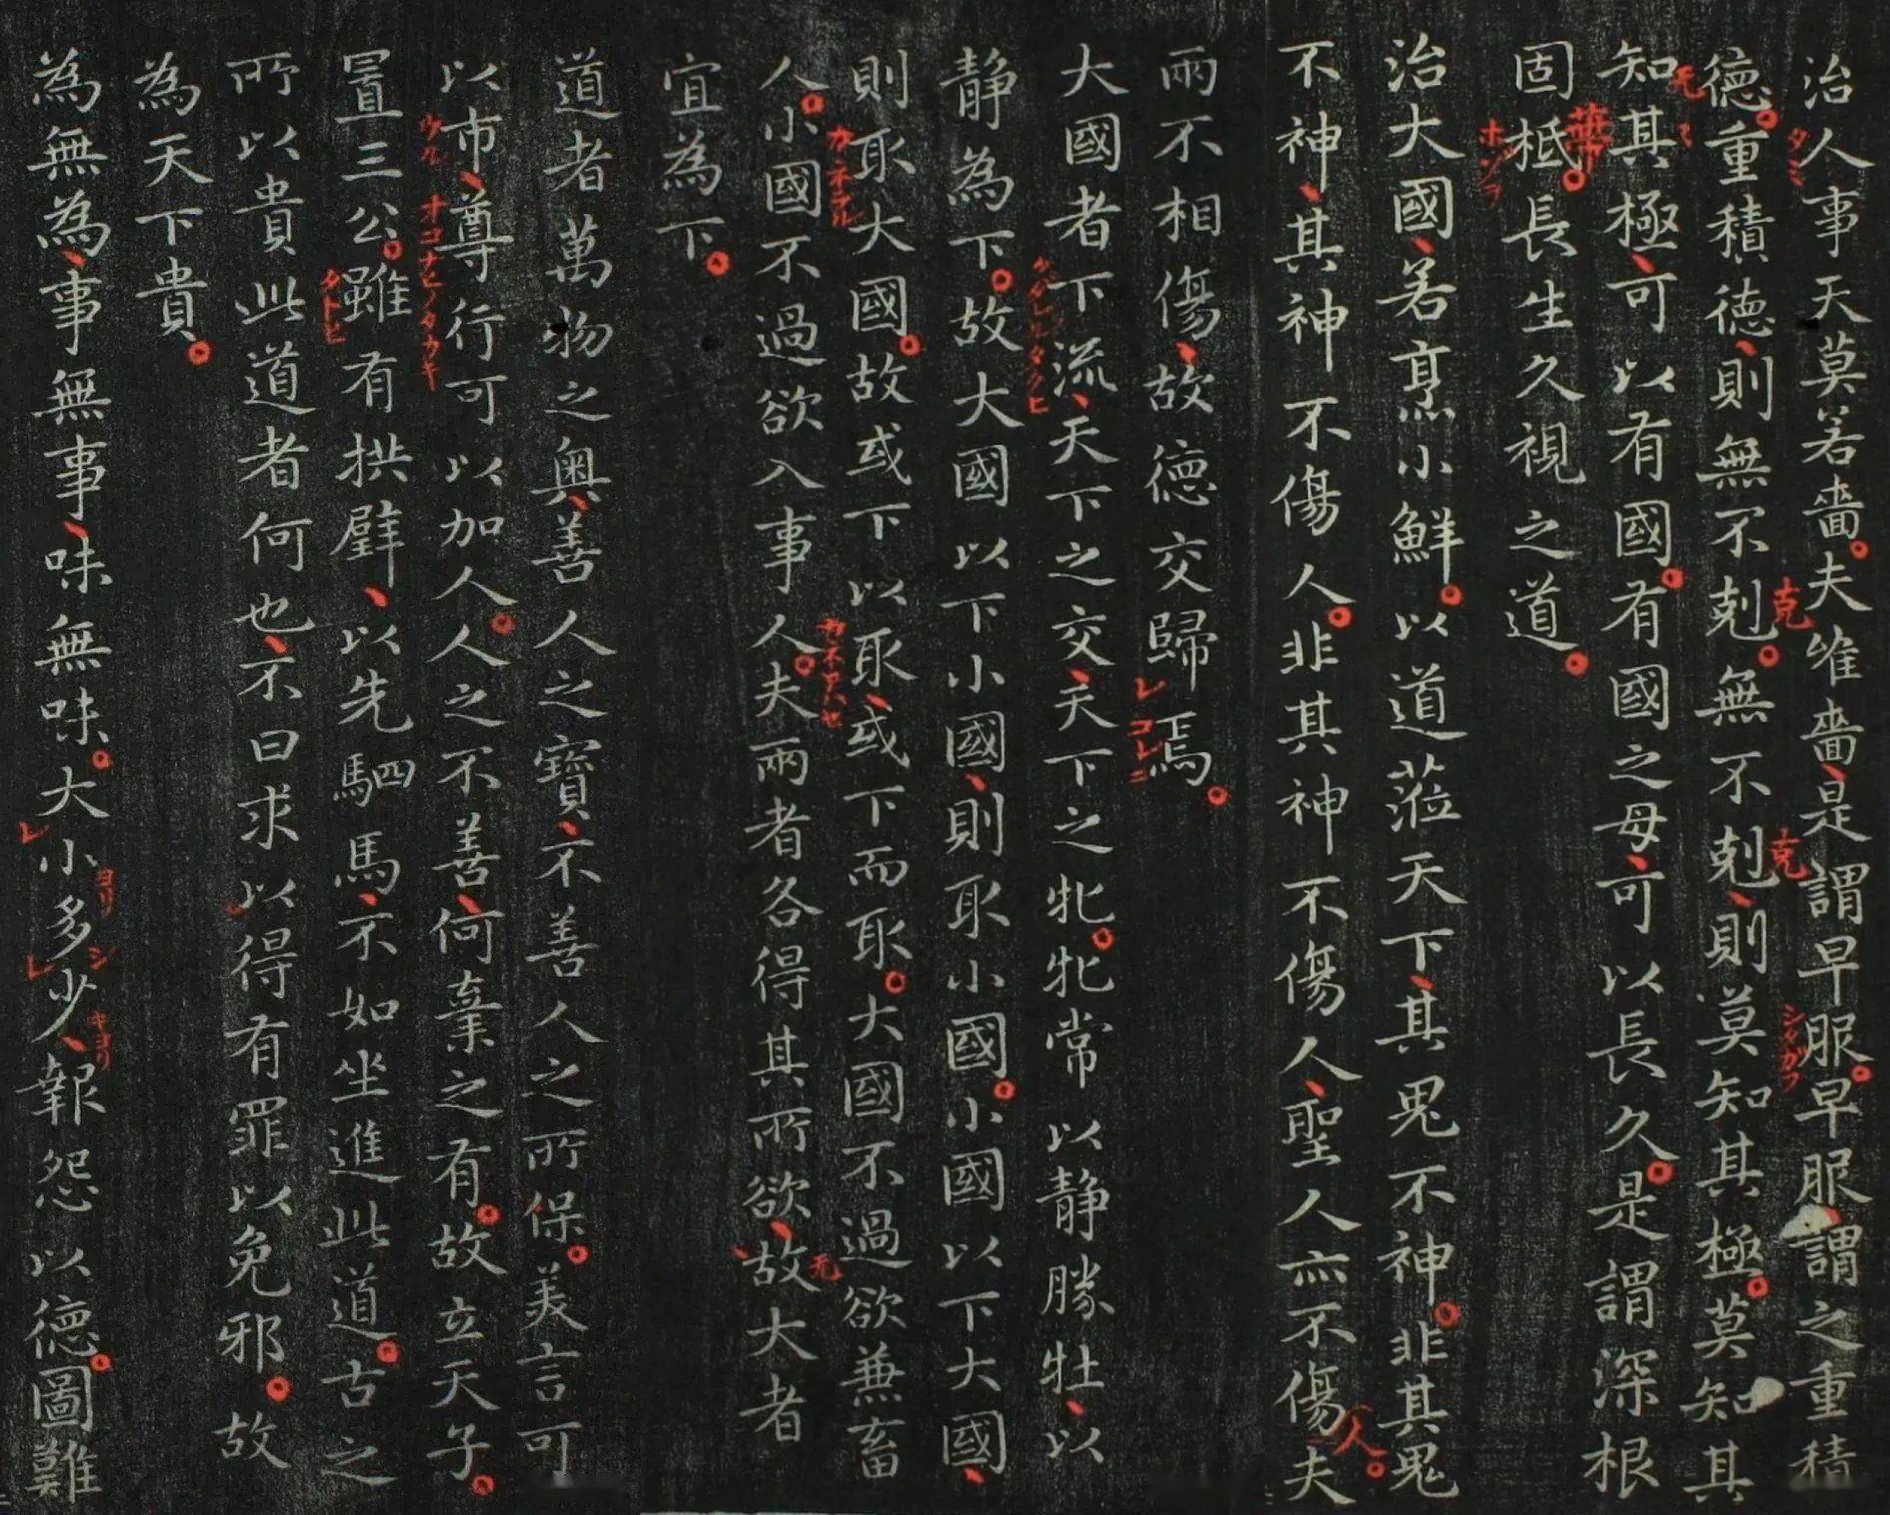 治人事天莫若嗇。夫唯嗇、是謂早服。早服、謂之重積
德。重積德、則無不剋。無不剋、則莫知其極。莫知其
知其極、可以有國。有國之母、可以長久。是謂深根
固柢。長生久視之道。
治大國、若烹小鮮。以道蒞天下、其鬼不神。非其鬼
不神、其神不傷人。非其神不傷人、聖人亦不傷人。夫
兩不相傷、故德交歸焉。
大國者下流、天下之交、天下之牝。牝常以靜勝牡、以
靜為下。故大國以下小國、則取小國。小國以下大國、
則取大國。故或下以取、或下而取。大國不過欲兼畜
人。小國不過欲入事人。夫兩者各得其所欲、故大者
宜為下。
道者萬物之奧、善人之寶、不善人之所保。美言可
以市、尊行可以加人。人之不善、何棄之有。故立天子。
置三公。雖有拱璧、以先駟馬、不如坐進此道。古之
所以貴此道者何也、不曰求以得有罪以免邪。故
為天下貴。
為無為、事無事、味無味。大小多少、報怨以德。圖難